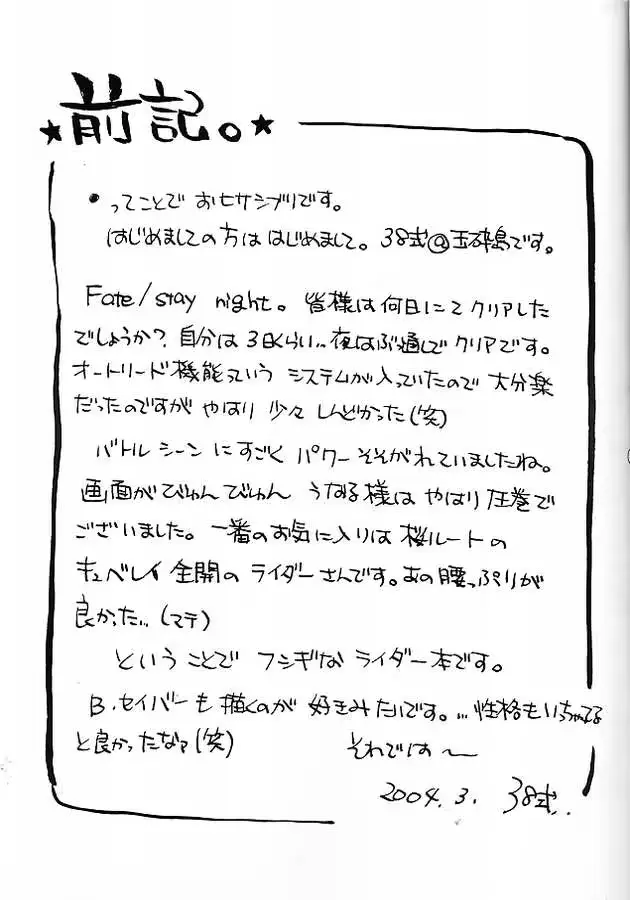 ★前記。★
・ってことで おヒサシブリです。
はじめましての方は はじめまして。38式@玉砕島です。
Fate/stay night。皆様は何日にてクリアした
でしょうか?自分は3日くらい…夜はぶっ通しで クリアです。
オートリード機能っていう システムが入っていたので 大分楽
だったのですが やはり 少々 しんどかった(笑)
バトルシーンに すごく パワー そそがれていましたね。
画面が びゅんびゅん うなる様は やはり 圧巻で
ございました。一番のお気に入りは 桜ルートの
キュベレイ 全開の ライダーさんです。あの腰っぷりが
良かった…(マテ)
ということで フシギな ライダー本です。
B.セイバーも 描くのが 好きみたいです。…性格もいっちゃってる
と良かったなァ(笑) それでは〜
2004.3. 38式..